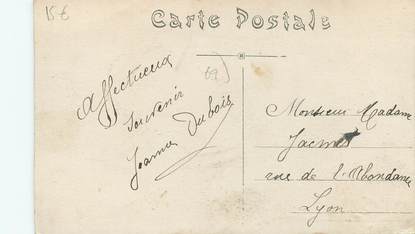 15€
Carte Postale
69
Affectueux
souvenir
Jeanne Dubois
Monsieur Madame
rue de l'Abondance
Lyon